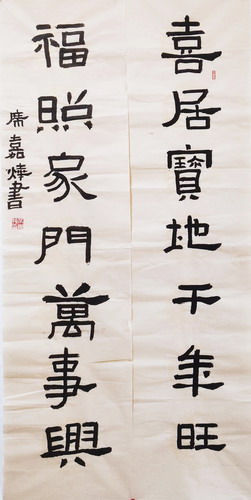 喜居寶地千年旺
福照家門萬事興
席嘉燁書